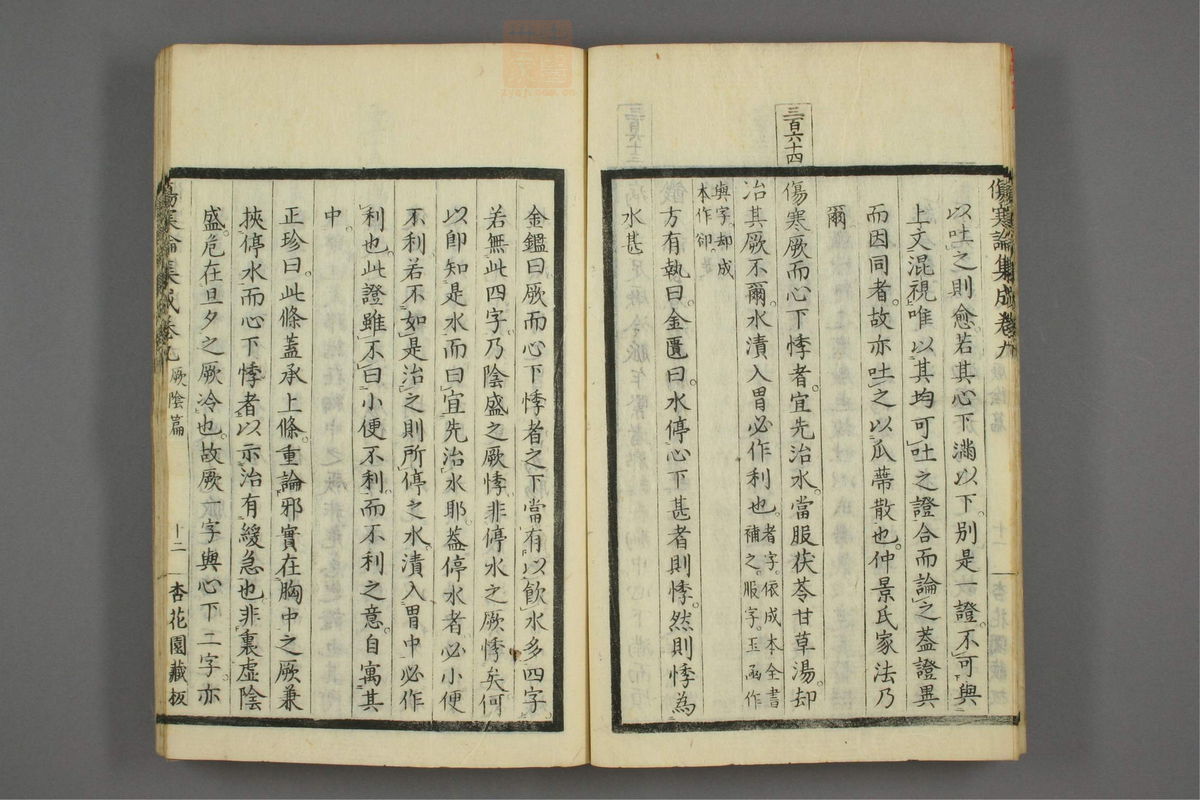 傷寒論集成卷九
以吐之則愈若其心下滿以下別是一證不可與
上文混視唯以其均可吐之證合而論之蓋證異
而因同者故亦吐之以瓜蔕散也仲景氏家法乃
爾
三百六十四
傷寒厥而心下悸者宜先治水當服茯苓甘草湯却
治其厥不爾水漬入胃必作利也者字依成本全書
補之服字玉函作
與字却成
本作卻
方有執曰金匱曰水停心下甚者則悸然則悸為
水甚
金鑑曰厥而心下悸者之下當有以飲水多四字
若無此四字乃陰盛之厥悸非停水之厥悸矣何
以即知是水而曰宜先治水耶蓋停水者必小便
不利若不如是治之則所停之水漬入胃中必作
利也此證雖不曰小便不利而不利之意自寓其
中
正珍曰此條蓋承上條重論邪實在胸中之厥兼
挾停水而心下悸者以示治有緩急也非裏虛陰
盛危在旦夕之厥冷也故厥一字與心下二字亦
傷寒論集成卷九 厥陰篇 十二 杏花園藏板